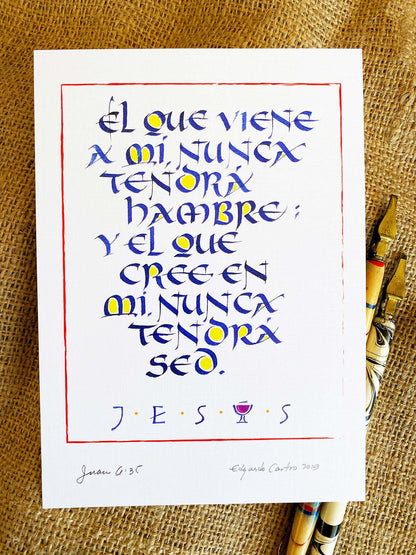 ÉL QUE VIENE
A MÍ, NUNCA
TENDRÁ
HAMBRE;
Y ÉL QUE
CREE EN
MÍ, NUNCA
TENDRÁ
SED.
J·E·S·Ú·S
Juan 6:35
Edgardo Castro 2019